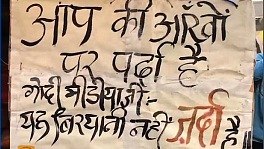 आप की आँखों
पर पर्दा है
गोदी मीडिया जी:-
यह बिरयानी नहीं ज़र्दा है